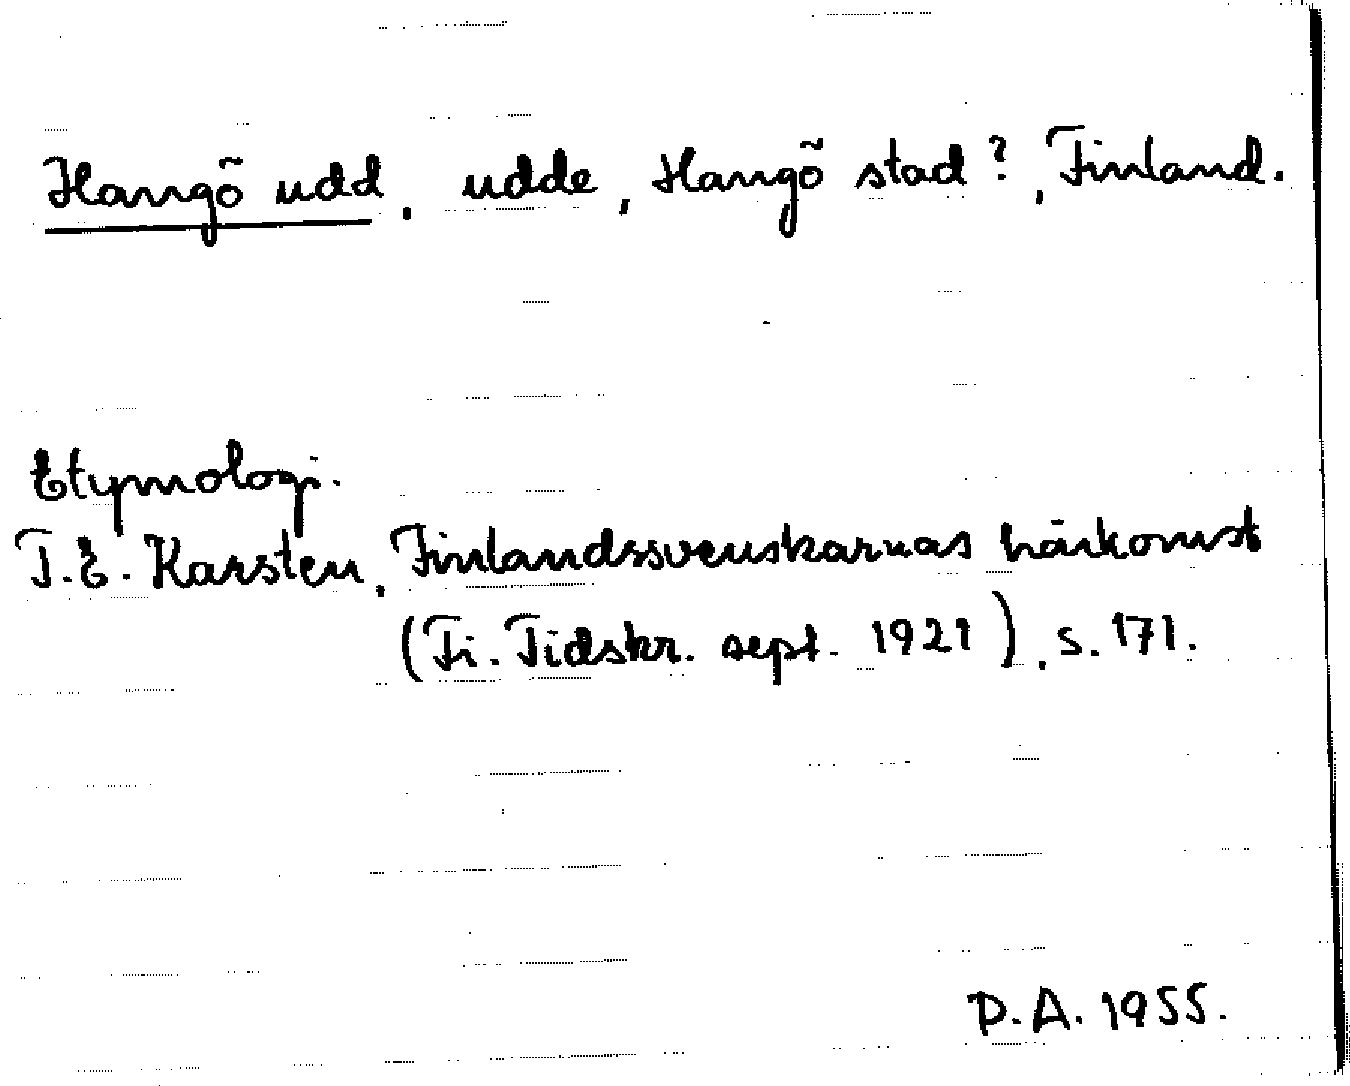 Hangö udd, udde, Hangö stad?, Finland.
Etymologi.
T.E. Karsten, Finlandssvenskarnas härkomst
(Fi. Tidskr. sept. 1921), s. 171.
P.A. 1955.